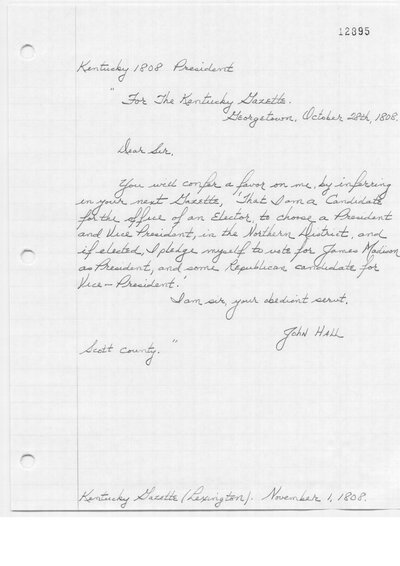 12895
Kentucky 1808 President
"For The Kentucky Gazette.
Georgetown, October 28th, 1808.
Dear Sir,
You will confer a favor on me, by inferring
in your next Gazette, 'That I am a Candidate
for the office of an Elector, to choose a President
and Vice President, in the Northern District, and
if elected, I pledge myself to vote for James Madison
as President, and some Republican candidate for
Vice-President.'
I am sir, your obedient servt.
John Hall
Scott County."
Kentucky Gazette (Lexington). November 1, 1808.